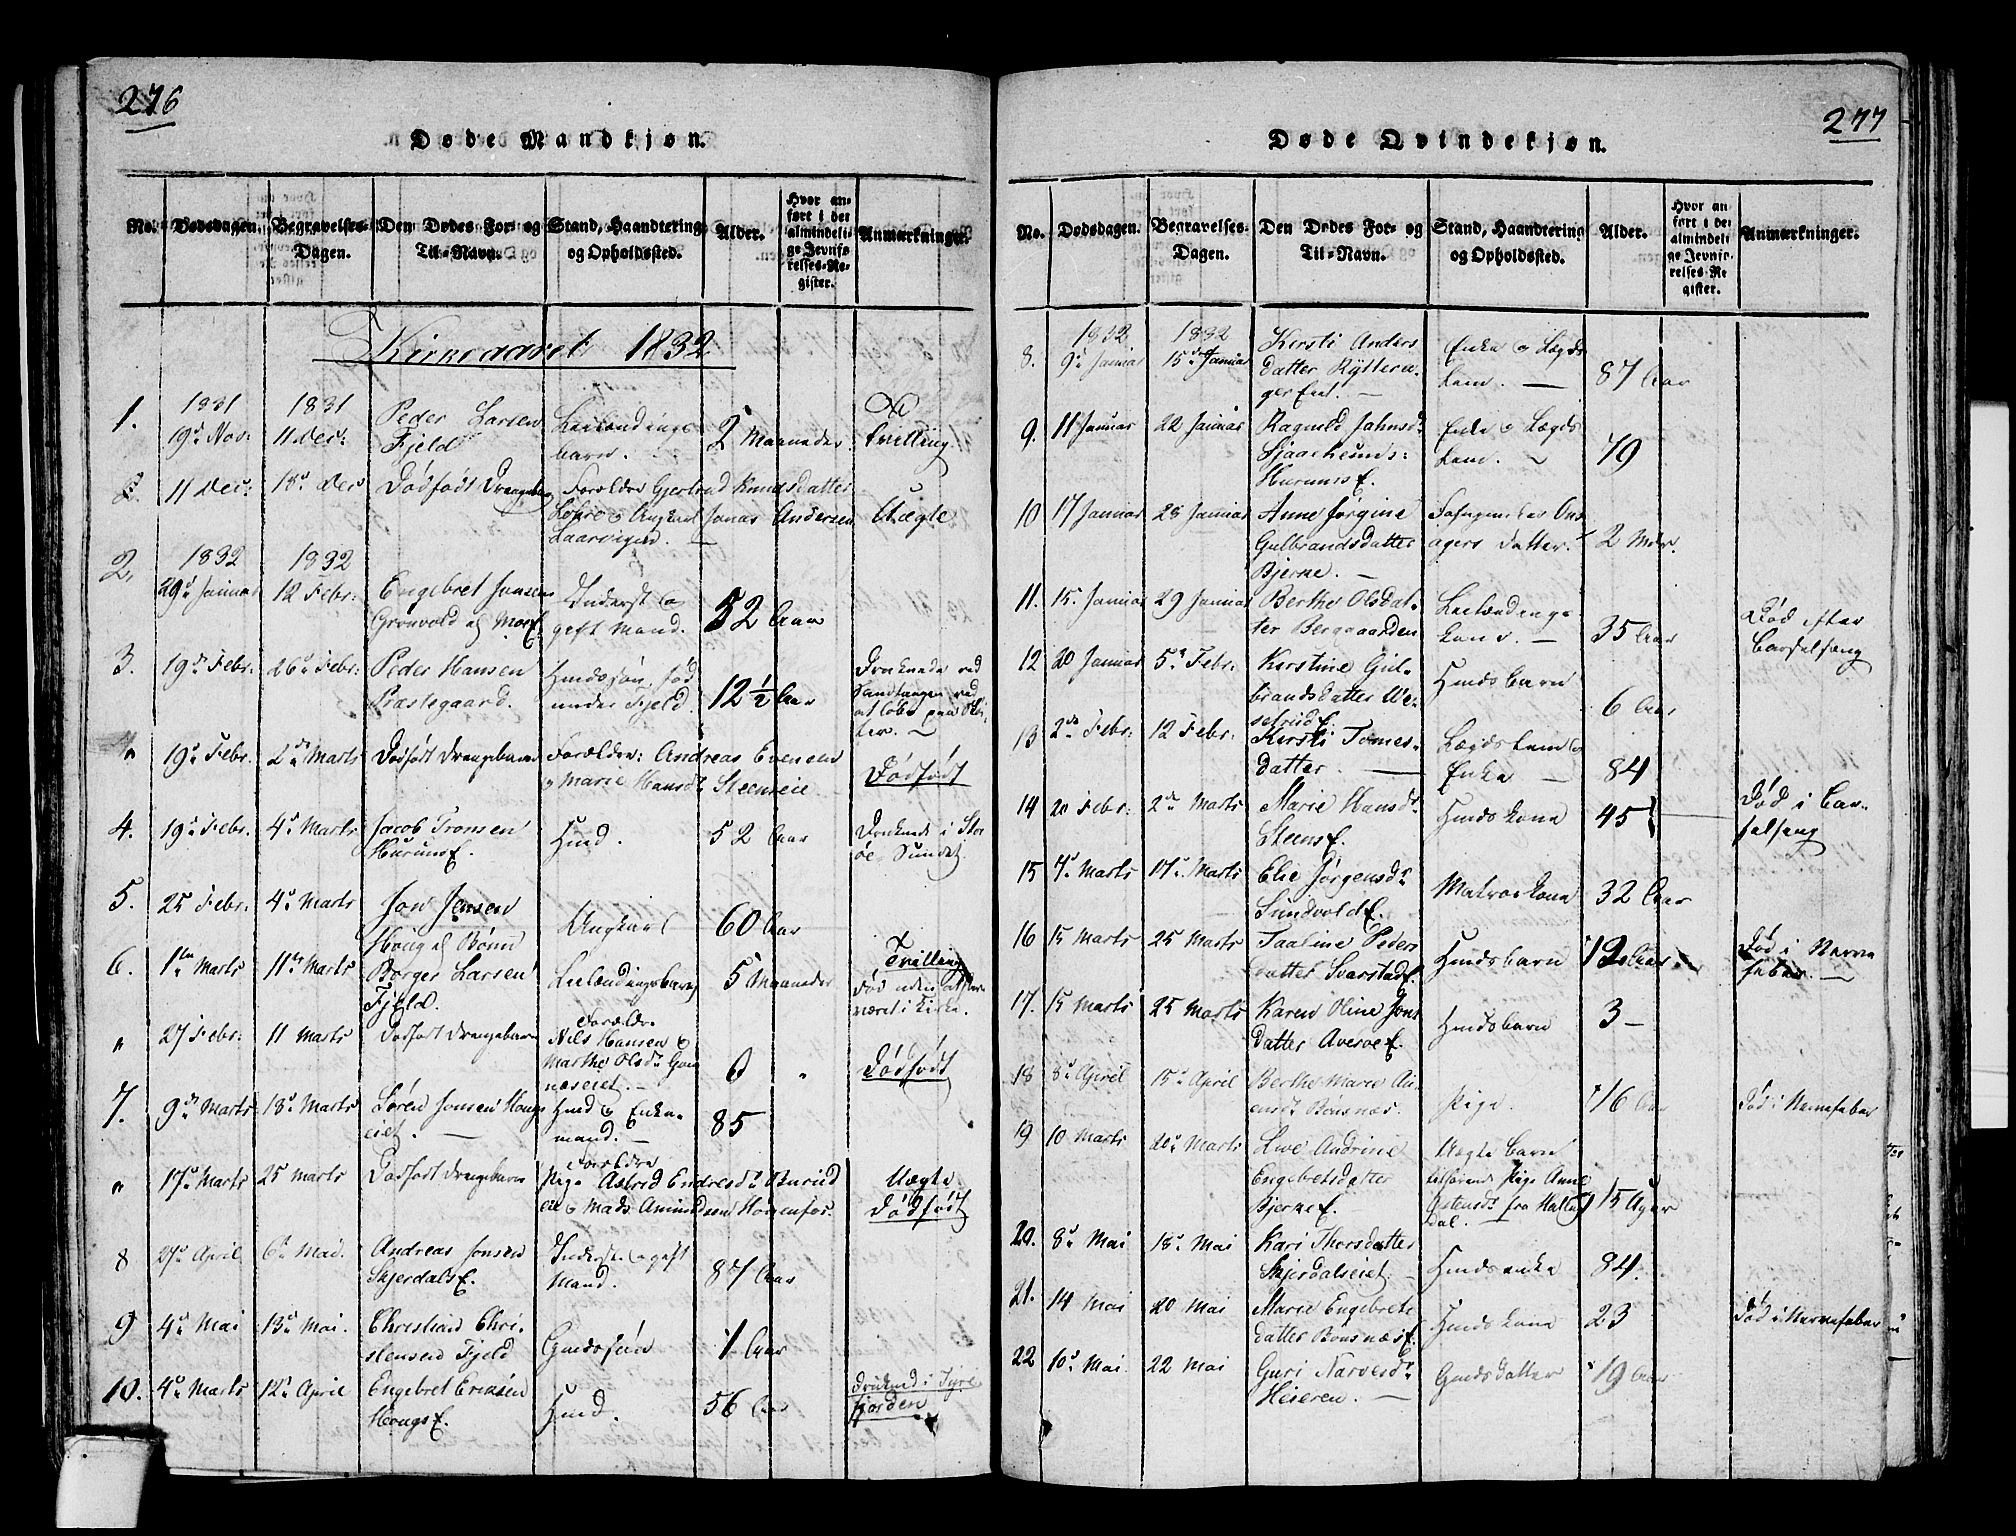 276
Døde Mandkjøn.
No. Dødsdagen. Begravelses-Dagen. Den Dødes For- og Til-Navn. Stand, Haandtering og Opholdssted. Alder. Hvor anført i det almindelige Jevnførelses-Register. Anmærkninger.
Kirkeaaret 1832
1. 1831 19d Nov: 1831 11 Dec: Peder Larsen Fjeld Leilændings barn. 2 Maaneder Tvilling
11 Dec: 18d Dec Dødfødt Drengebarn Forældre Gjertrud Knudsdatter Ungkarl Jonas Andersen Laarvigen. Uægte
2. 1832 29d Januar 1832 12 Febr: Engebret Jensen Grønvold Inderst og gift Mand. 52 Aar
3. 19d Febr: 26d Febr: Peder Hansen Præstegaard. Huusds søn, fød under Fjeld. 12 1/2 Aar Druknede ved
" 19d Febr. 2de Marts Dødfødt Drengebarn Forældre: Andreas Evensen og Marie Hansdr Steenseie Dødfødt
4. 19d Febr. 4d Marts Jacob Tronsen Hurumsf. Huusd. 52 Aar Druknede i Sundet.
5. 25 Febr. 4d Marts Jon Jensen Houg Ungkarl 60 Aar
6. 1ste Marts 11te Marts Borger Larsen Fjeld. Leilændingsbarn 5 Maaneder Tvilling Død uden at have været i Kirke.
" 27 Febr: 11 Marts Dødfødt Drengebarn Forældre Nils Hansen og Marthe Olsdr Gom næseiet. 0 " Dødfødt
7. 9de Marts 18d Marts Søren Jonsen Hougs eiet. Huusd og Enke-mand. 85
" 17d Marts 25 Marts Dødfødt Drengebarn Forældre Pige Astrid Endresdr Burud eie og Mads Amundsen Hønenfos. Uægte Dødfødt
8 27d April 6d Mai. Andreas Jonsen Skjerdalsf. Inderst og gift Mand. 87 Aar
9 4d Mai 13d Mai. Christian Chri-stensen Fjeld Gaardssøn 1 Aar
10. 4d Marts 12d April Engebret Eriksen Hougsf. Huusd. 56 Aar druknet i Tyri fjorden
277
Døde Qvindekjøn.
No. Dødsdagen. Begravelses-Dagen. Den Dødes For- og Til-Navn. Stand, Haandtering og Opholdssted. Alder. Hvor anført i det almindelige Jevnførelses-Register. Anmærkninger.
8. 1832 9d Januar 1832 15de Januar Kirsti Anders datter Rytteraa-ger Eiet. Enke og Lægds Lem. 87 Aar
9. 11 Januar 22 Januar Ragnild Jahnsdr Hurumsf. Enke og Lægds Lem. 79
10 17 Januar 28 Januar Anne Jørgine Gulbrandsdatter Bjerke. datter. 2 Mdr.
11. 15. Januar 29 Januar Berthe Olsdat-ter Berggaarden Leilændings kone. 35 Aar Død efter Barselseng
12 20 Januar 5d Febr: Kirstine Gul-brandsdatter Huusdsbarn 6 Aar
13 2de Febr: 12 Febr: Kirsti Tomes-datter. Lægdslem og Enke 84
14 20 Febr: 2de Marts Marie Hansdr Steensf. Huusdskone 45 Død i Bar-selseng
15 4d Marts 17d Marts Elie Jørgensdr Sundvoldf. Matroskone 32 Aar
16 15 Marts 25 Marts Taaline Peders datter Svarstadf. Huusdsbarn 12 Aar Død i Nerve feber.
17. 15 Marts 25 Marts Karen Oline Jons datter Averøef. Huusdsbarn 3
18 8d April 15d April Berthe Marie An-ensdr Bønsnæs. Pige. 76 Aar Død i Nervefeber
19 10 Marts 20d Marts Live Andrine Engebretsdatter Bjerkef. Uægte Barn tilhørende Pige Anne fra Halling dal. 15 Uger
20. 8d Mai 18d Mai Kari Thorsdatter Skjerdalseiet. Huusdsenke 84.
21. 14 Mai 20 Mai Marie Engebrets datter Bønsnæsf. Huusdskone 23 Død i Nervefeber
22 10d Mai 22 Mai Guri Narvesdr Heieren. Gaardsdatter 19 Aar